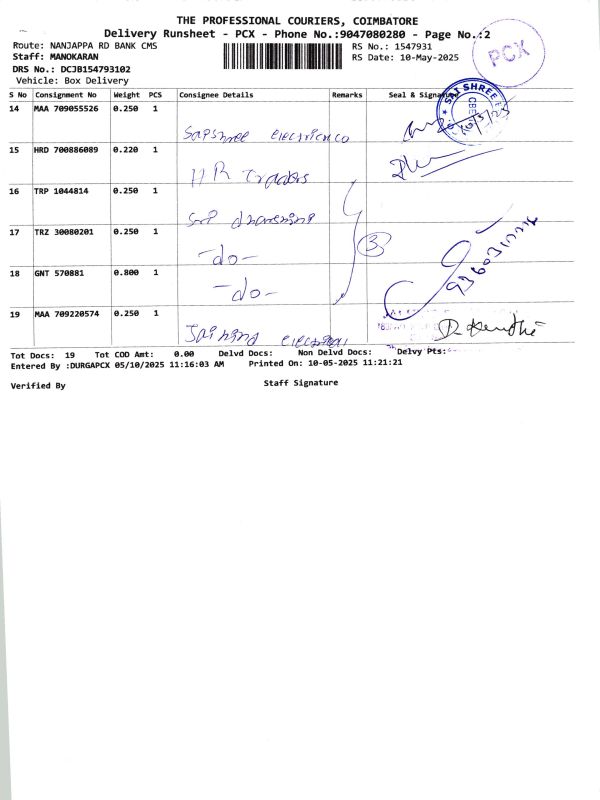 THE PROFESSIONAL COURIERS, COIMBATORE
Delivery Runsheet - PCX - Phone No.:9047080280 - Page No.:2
Route: NANJAPPA RD BANK CMS
Staff: MANOKARAN
DRS No.: DCJB154793102
Vehicle: Box Delivery
RS No.: 1547931
RS Date: 10-May-2025
PCX
S No Consignment No Weight PCS Consignee Details Remarks Seal &
14 MAA 709055526 0.250 1
SRI SHREE
15 HRD 700886089 0.220 1
HR Traders
16 TRP 1044814 0.250 1
17 TRZ 30080201 0.250 1
-do-
18 GNT 570881 0.800 1
-do-
3
19 MAA 709220574 0.250 1
Tot Docs: 19 Tot COD Amt: 0.00 Delvd Docs: Non Delvd Docs: Delvy Pts:
Entered By :DURGAPCX 05/10/2025 11:16:03 AM Printed On: 10-05-2025 11:21:21
Verified By Staff Signature